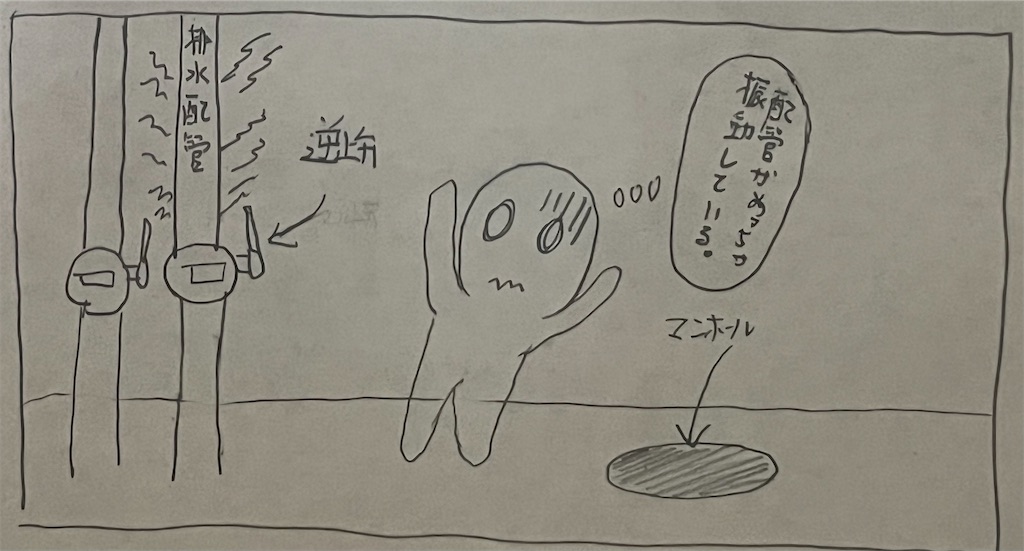 排水配管
逆止弁
配管がめっちゃ
振動している。
マンホール